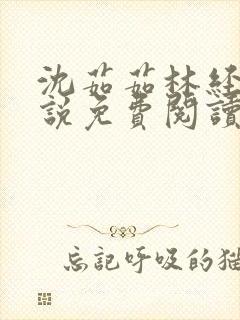 沈茹茹林经
說免費閱讀
忘記呼吸的猫